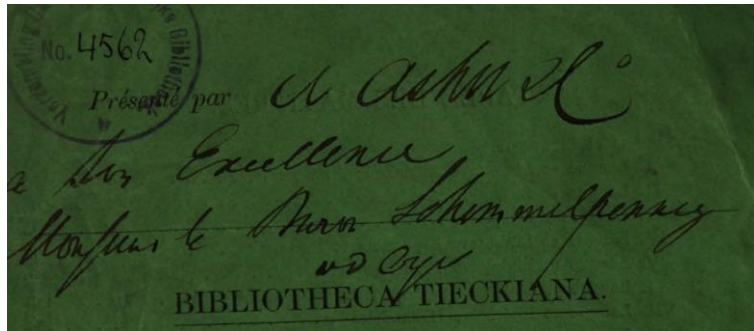 No. 4562
Présenté par A Asher & Co
a Son Excellence
Monsieur le Baron Schimmelpenninck
vd Oye
BIBLIOTHECA TIECKIANA.